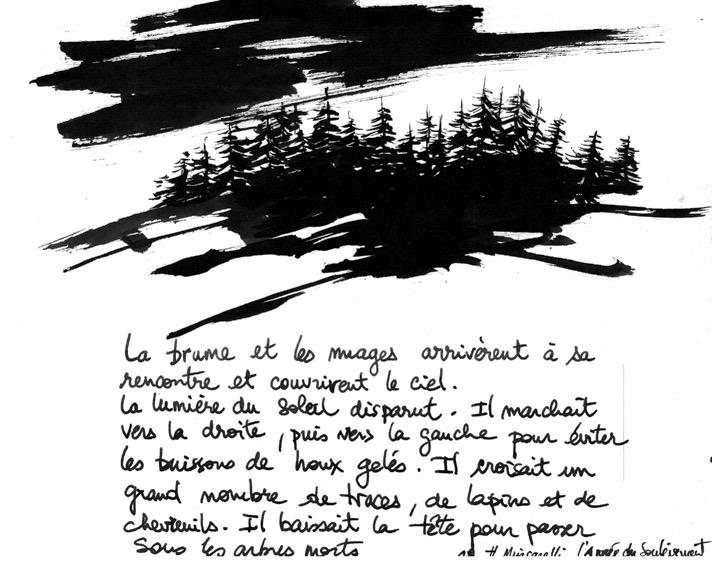 La brume et les nuages arrivèrent à sa
rencontre et couvrirent le ciel.
La lumière du Soleil disparut. Il marchait
vers la droite, puis vers la gauche pour éviter
les buissons de houx gelés. Il croisait un
grand nombre de traces, de lapins et de
chevreuils. Il baissait la tête pour passer
Sous les arbres morts
l'Année du Soulèvement